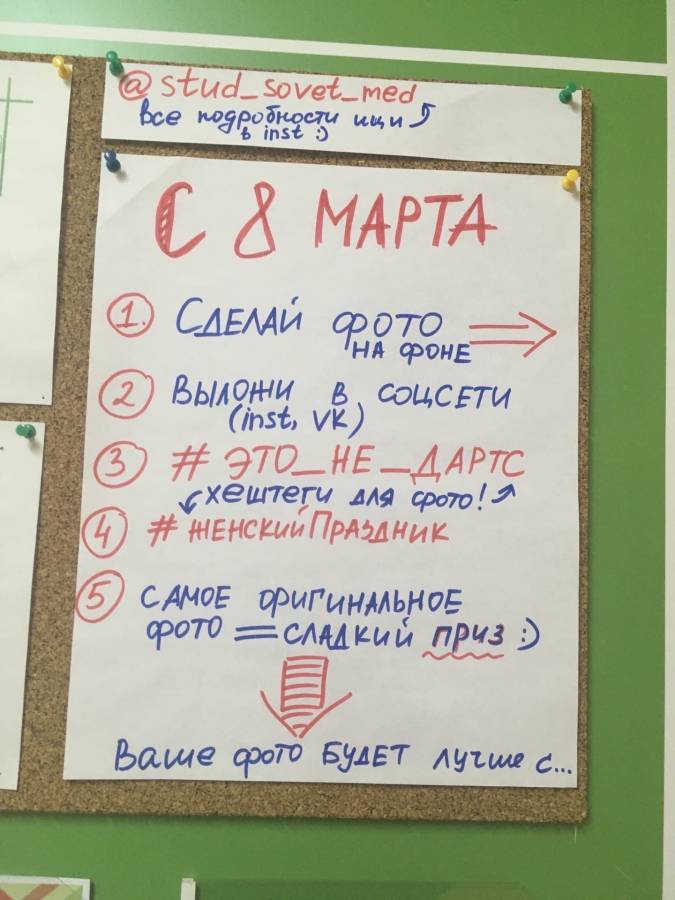 @stud_sovet_med
все подробности ищи
в inst :)
С 8 МАРТА
1. СДЕЛАЙ ФОТО
НА ФОНЕ
2 ВЫЛОЖИ В СОЦСЕТИ
(inst, VK)
3 # ЭТО_НЕ_ДАРТС
хештеги для фото!
4 # ЖЕНСКИЙПРАЗДНИК
5 САМОЕ ОРИГИНАЛЬНОЕ
ФОТО = СЛАДКИЙ ПРИЗ :)
Ваше фото БУДЕТ лучше с...